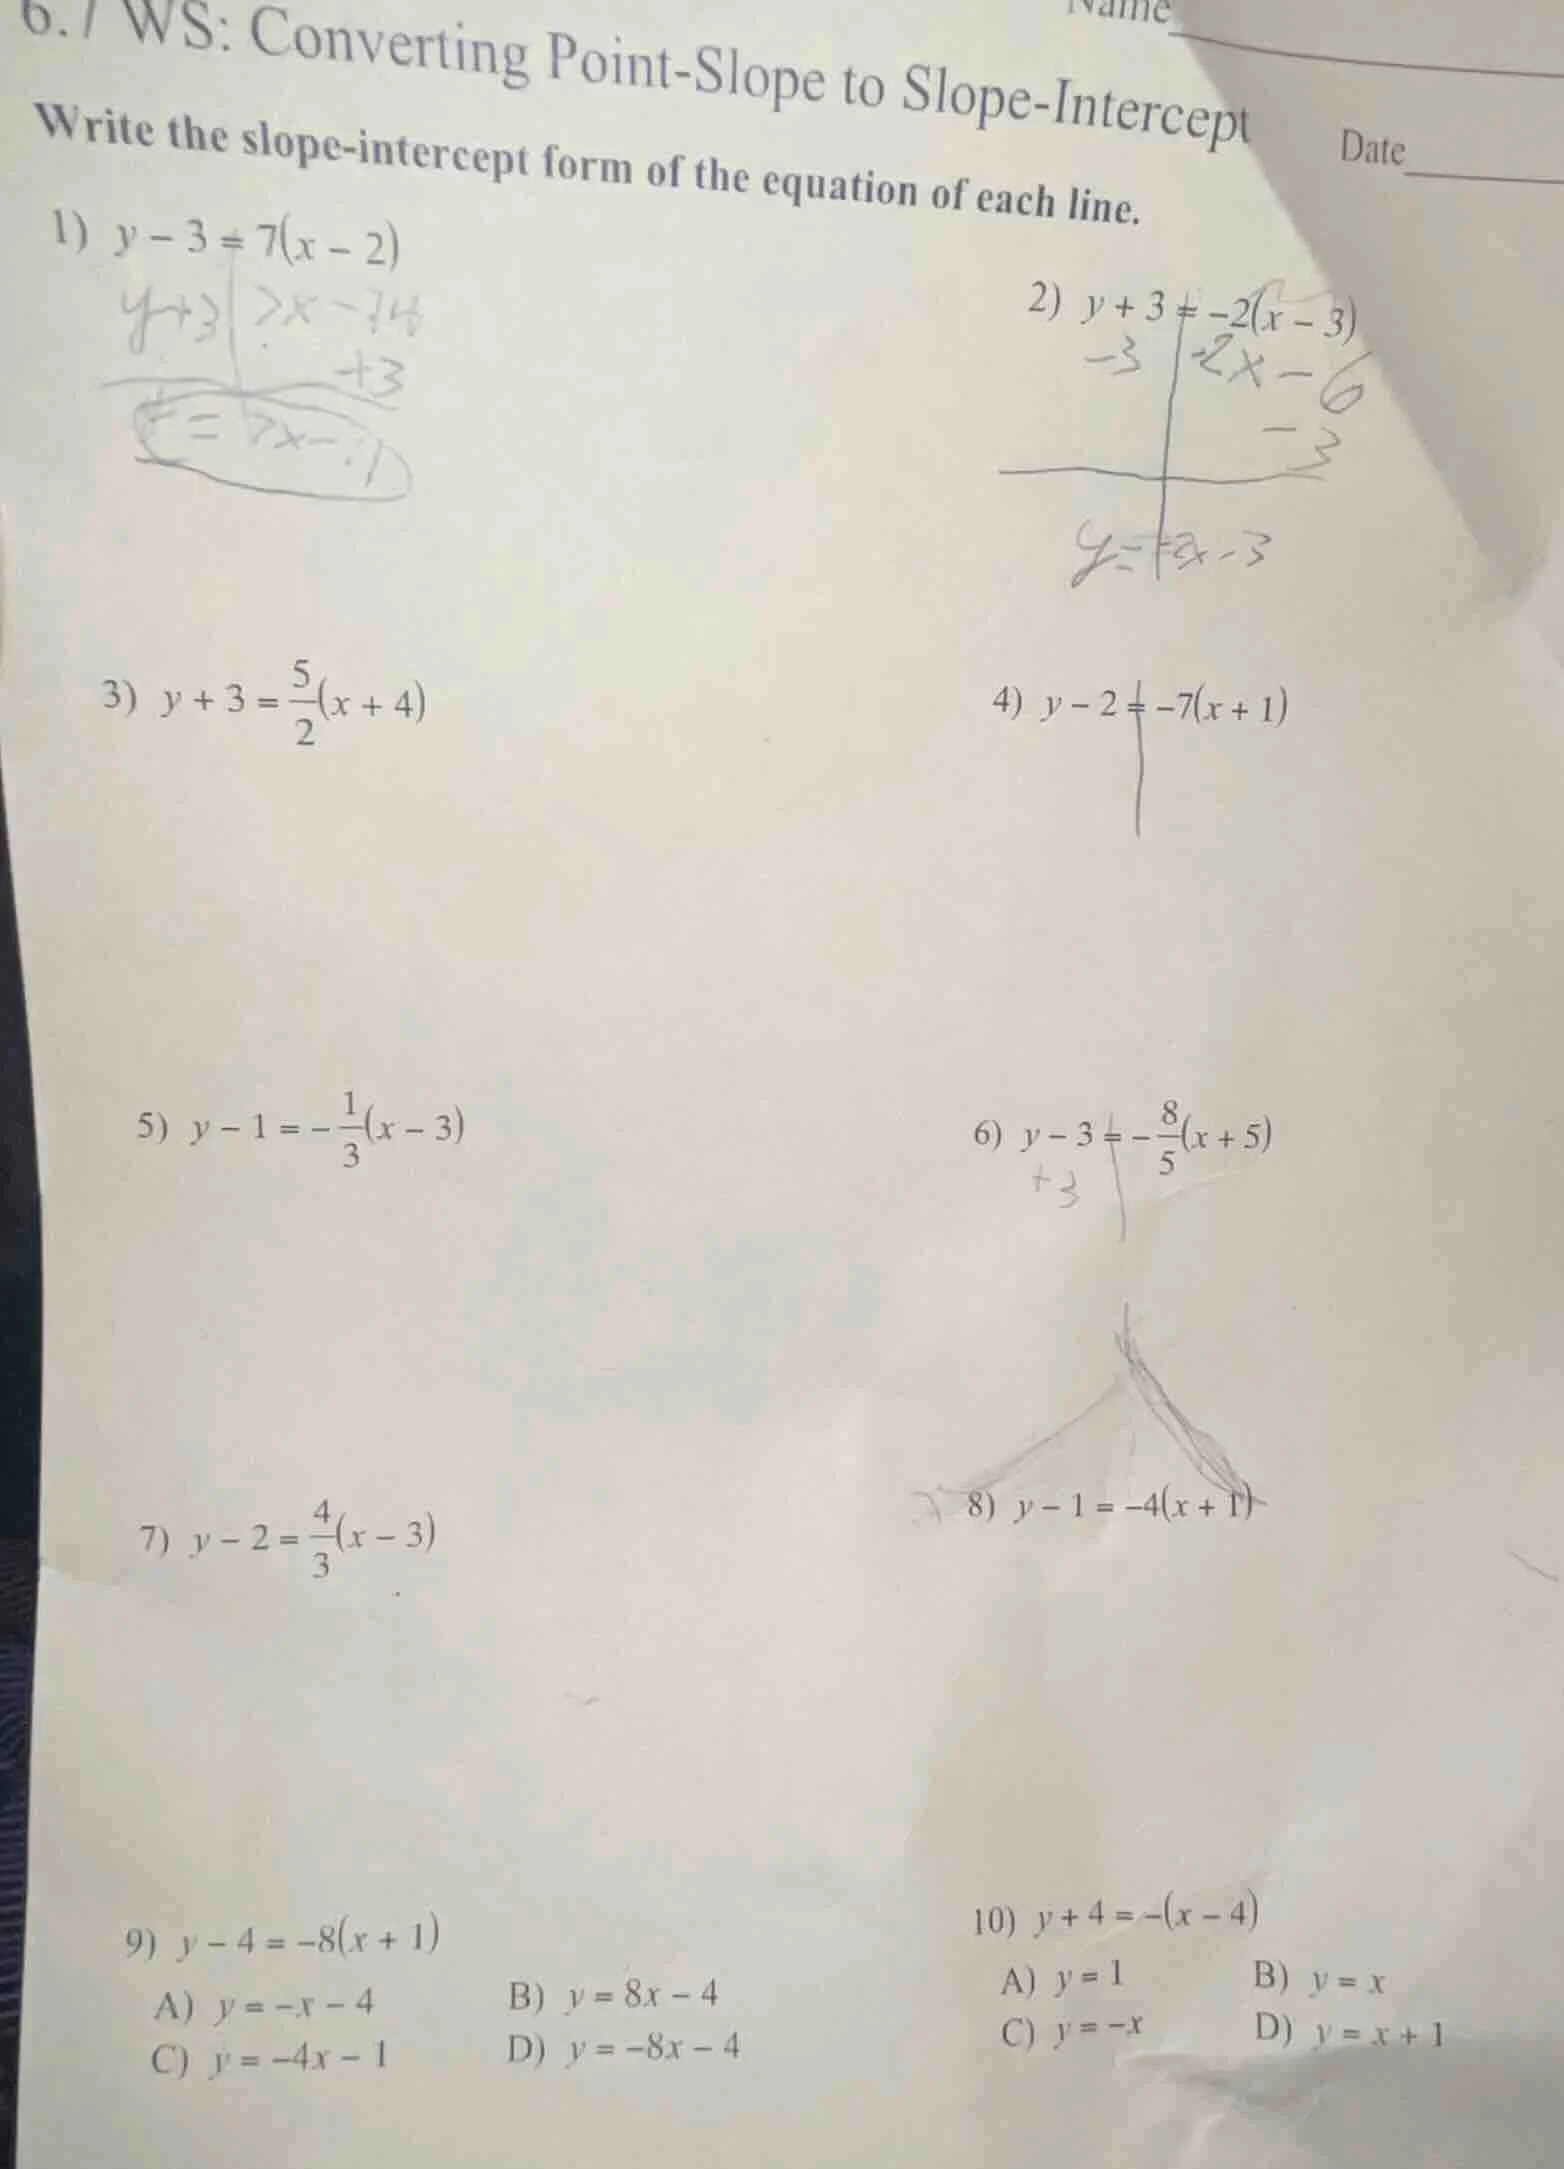 6.7 WS: Converting Point-Slope to Slope-Intercept
Name
Date
Write the slope-intercept form of the equation of each line.
1) y − 3 = 7(x − 2)
y+3 7x − 14
+3
= 7x − 11
2) y + 3 = −2(x − 3)
−3 -2x − 6
− 3
y = -2x - 3
3) y + 3 = 5/2(x + 4)
4) y − 2 = −7(x + 1)
5) y − 1 = −1/3(x − 3)
6) y − 3 = −8/5(x + 5)
+3
7) y − 2 = 4/3(x − 3)
8) y − 1 = −4(x + 1)
9) y − 4 = −8(x + 1)
A) y = −x − 4 B) y = 8x − 4
C) y = −4x − 1 D) y = −8x − 4
10) y + 4 = −(x − 4)
A) y = 1 B) y = x
C) y = −x D) y = x + 1